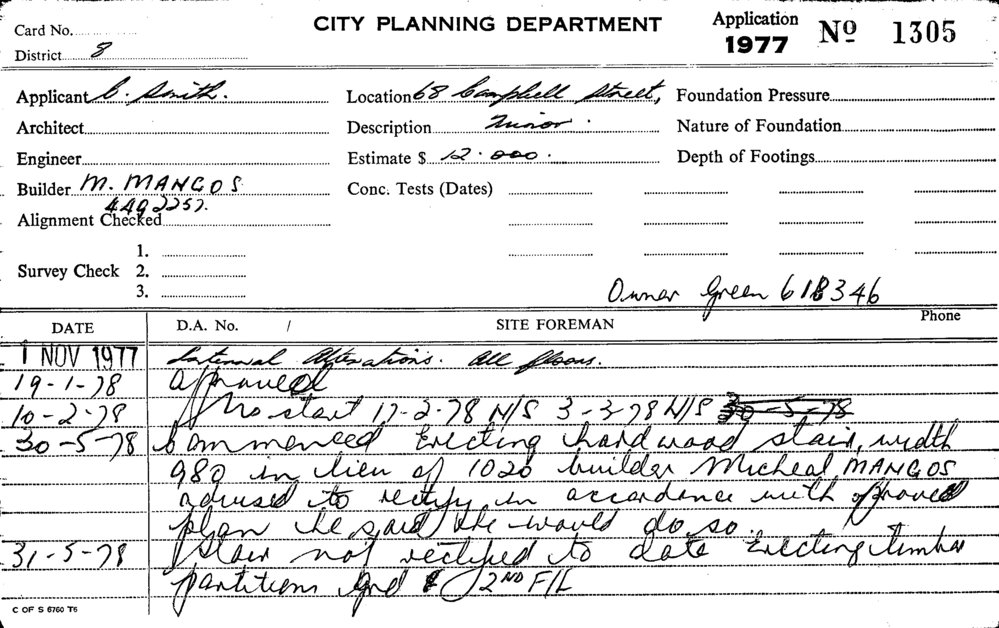 Card No.
CITY PLANNING DEPARTMENT
Application 1977 Nº 1305
District 8
Applicant C. Smith.
Location 68 Campbell Street,
Foundation Pressure
Architect
Description Minor.
Nature of Foundation
Engineer
Estimate $ 12.000.
Depth of Footings
Builder M. MANGOS
Conc. Tests (Dates)
4492257.
Alignment Checked
1.
Survey Check 2.
3.
Owner Green 618346
Phone
DATE D.A. No. / SITE FOREMAN
1 NOV 1977 Internal Alterations. All floors.
19-1-78 Approved
10-2-78 No start 17-2-78 N/S 3-3-78 N/S 30-5-78
30-5-78 Commenced Erecting hardwood stair, width
980 in lieu of 1020 builder Micheal MANGOS
advised to rectify in accordance with approved
plan he said he would do so.
31-5-78 Stair not rectified to date Erecting timber
partitions Grd & 2ND F/L
C OF S 6760 T6